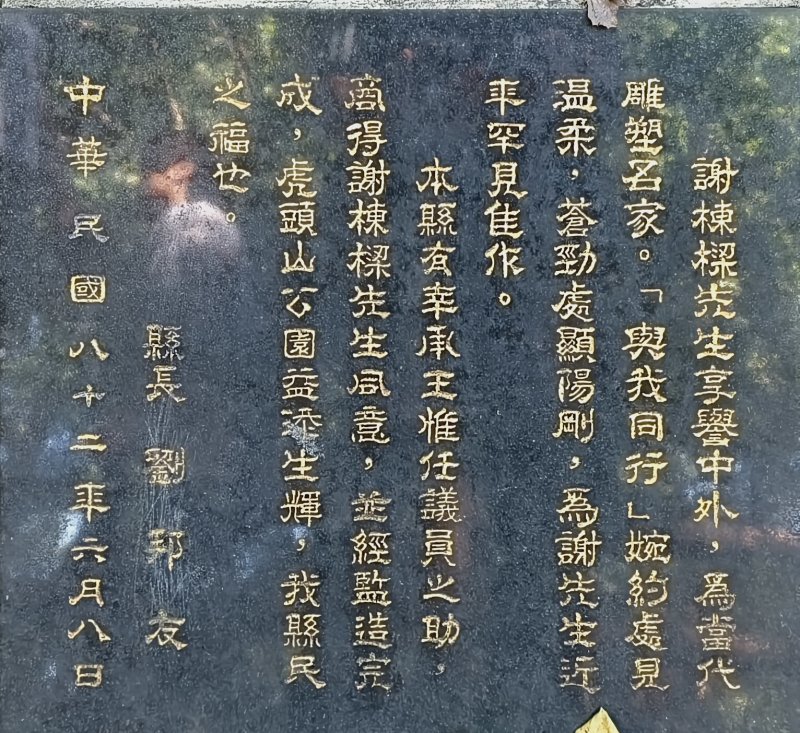 謝棟樑先生享譽中外，為當代
雕塑名家。「與我同行」婉約處見
温柔，蒼勁處顯陽剛，為謝先生近
年罕見佳作。
本縣有幸承王惟任議員之助，
商得謝棟樑先生同意，並經監造完
成，虎頭山公園益添生輝，我縣民
之福也。
縣長 劉邦友
中華民國八十二年六月八日